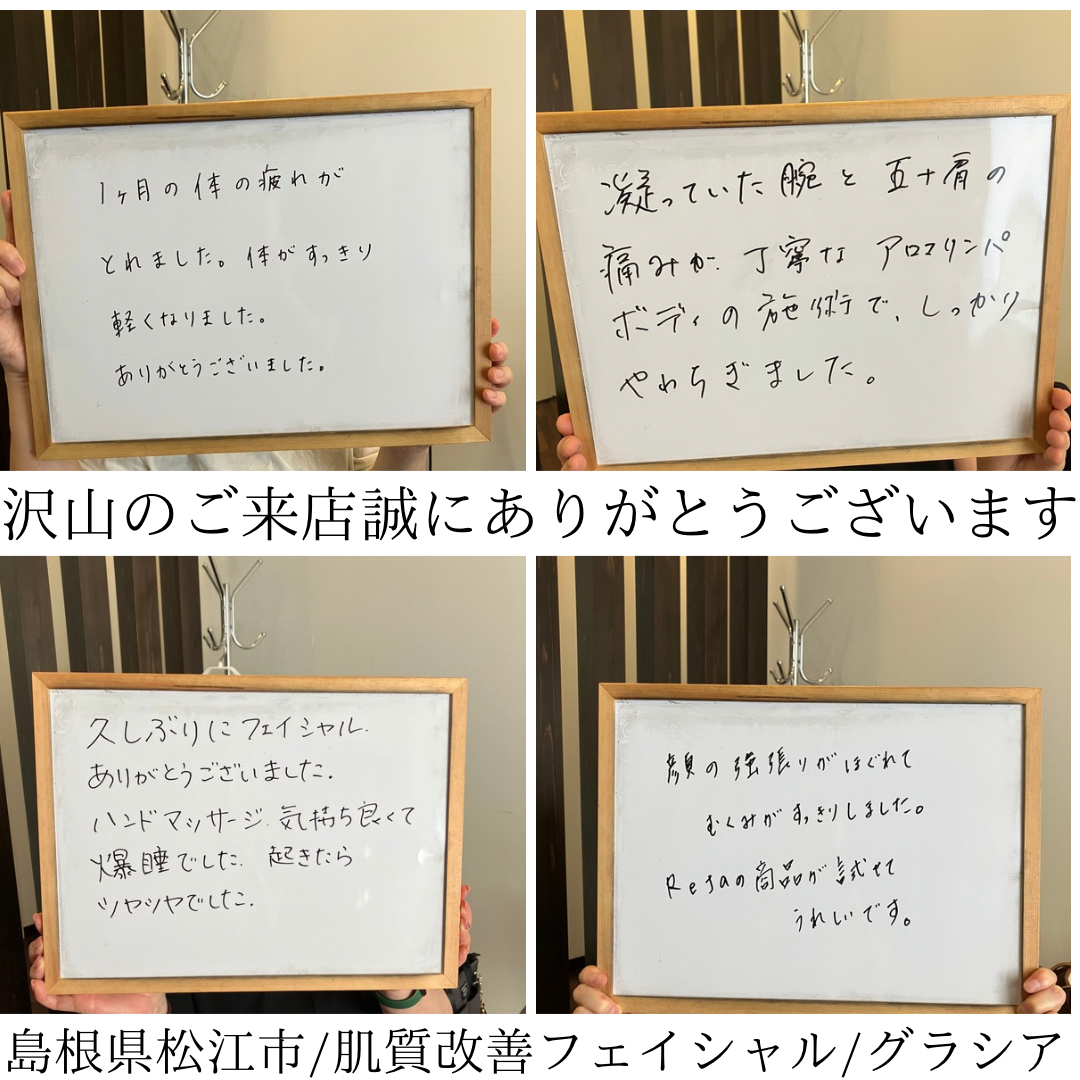 1ヶ月の体の疲れが
とれました。体がすっきり
軽くなりました。
ありがとうございました。
凝っていた腕と五十肩の
痛みが、丁寧なアロマリンパ
ボディの施術で、しっかり
やわらぎました。
沢山のご来店誠にありがとうございます
久しぶりにフェイシャル
ありがとうございました.
ハンドマッサージ、気持ち良くて
爆睡でした. 起きたら
ツヤツヤでした.
顔の強張りがほぐれて
むくみがすっきりしました。
Refaの商品が試せて
うれしいです。
島根県松江市/肌質改善フェイシャル/グラシア